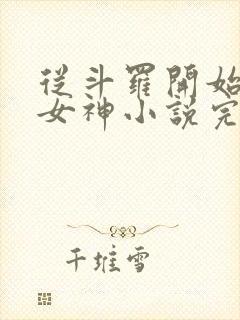 從斗羅開始
女神小說完
千堆雪